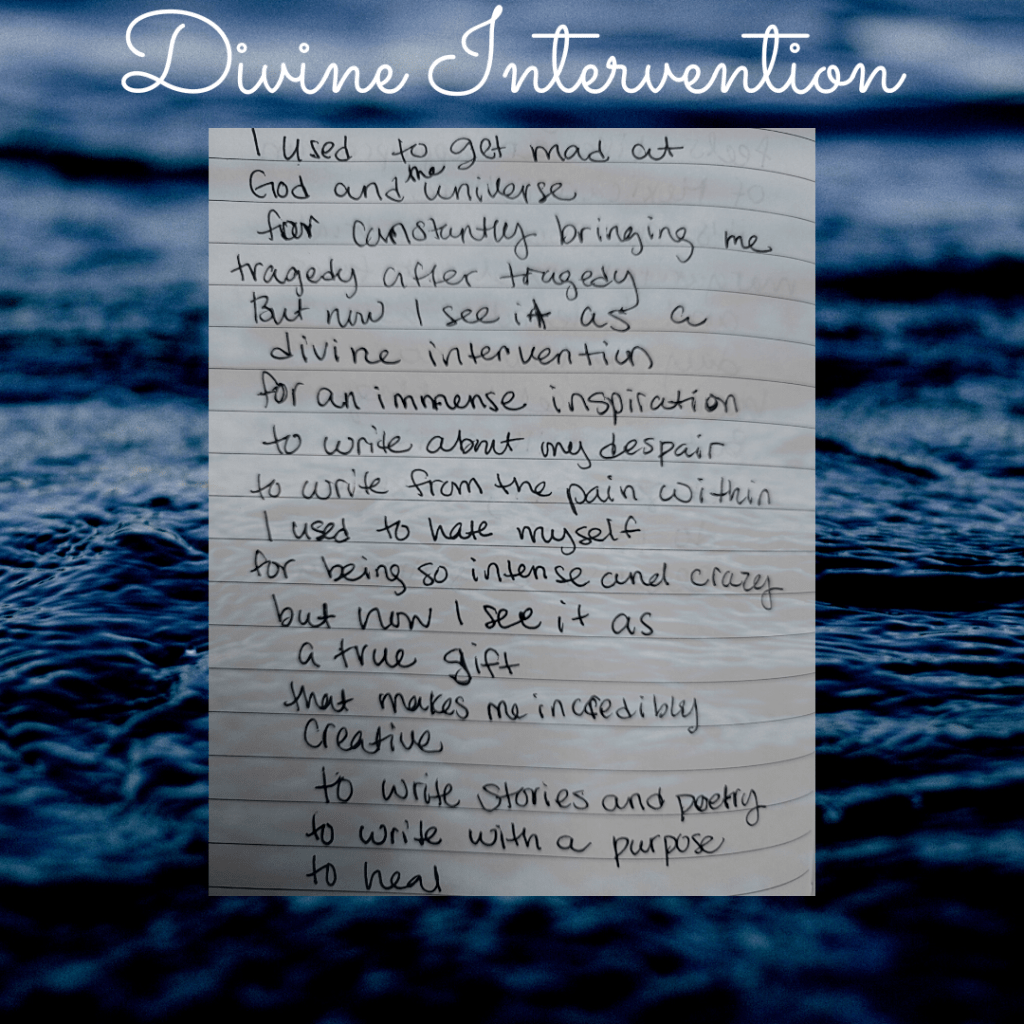 Divine Intervention
I used to get mad at
God and the universe
for constantly bringing me
tragedy after tragedy
But now I see it as a
divine intervention
for an immense inspiration
to write about my despair
to write from the pain within
I used to hate myself
for being so intense and crazy
but now I see it as
a true gift
that makes me incredibly
creative
to write stories and poetry
to write with a purpose
to heal